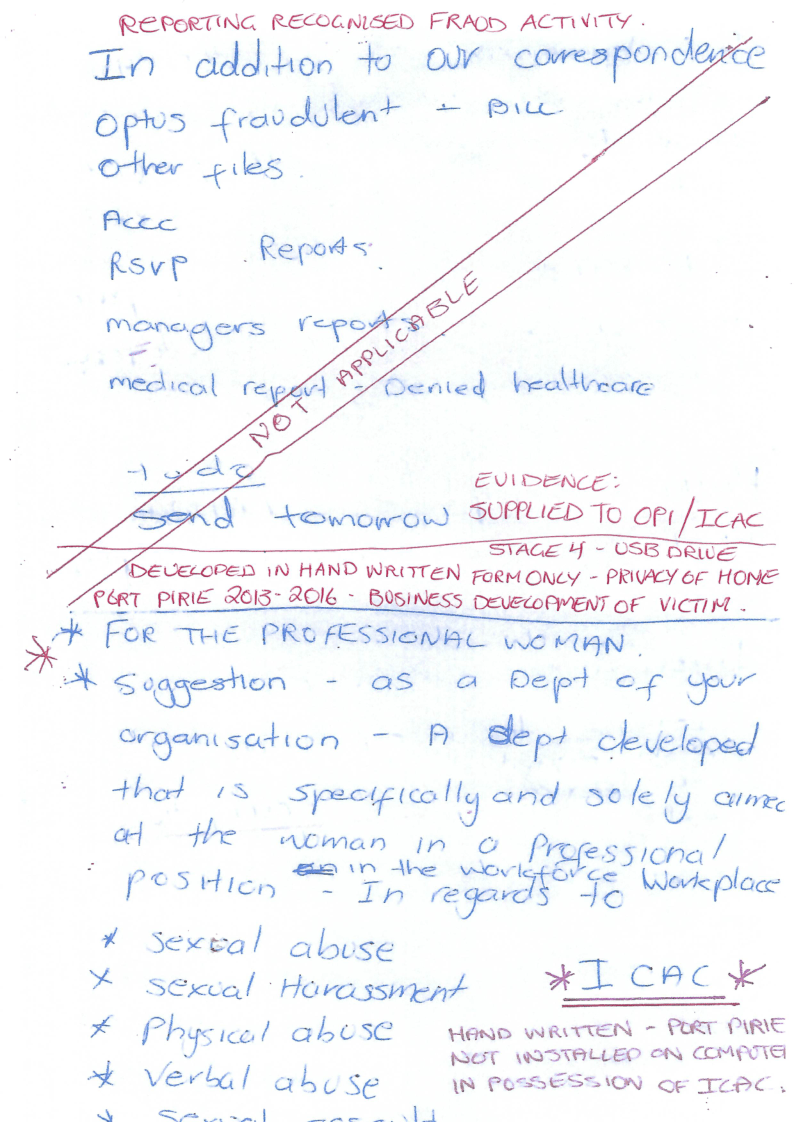 REPORTING RECOGNISED FRAUD ACTIVITY.
In addition to our correspondence
Optus fraudulent - BILL
Other files.
Accc
RSVP Reports.
managers reports
medical report - Denied healthcare
NOT APPLICABLE
Send tomorrow
EVIDENCE:
SUPPLIED TO OPI/ICAC
STAGE 4 - USB DRIVE
DEVELOPED IN HAND WRITTEN FORM ONLY - PRIVACY OF HOME
PORT PIRIE 2013-2016 - BUSINESS DEVELOPMENT OF VICTIM.
* FOR THE PROFESSIONAL WOMAN.
* Suggestion - as a Dept of your
organisation - A dept developed
that is specifically and solely aimed
at the woman in a Professional
position in the workforce Workplace
- In regards to
* Sexual abuse
* Sexual Harassment
* Physical abuse
* Verbal abuse
* Sexual assault
* ICAC *
HAND WRITTEN - PORT PIRIE
NOT INSTALLED ON COMPUTER
IN POSSESSION OF ICAC.